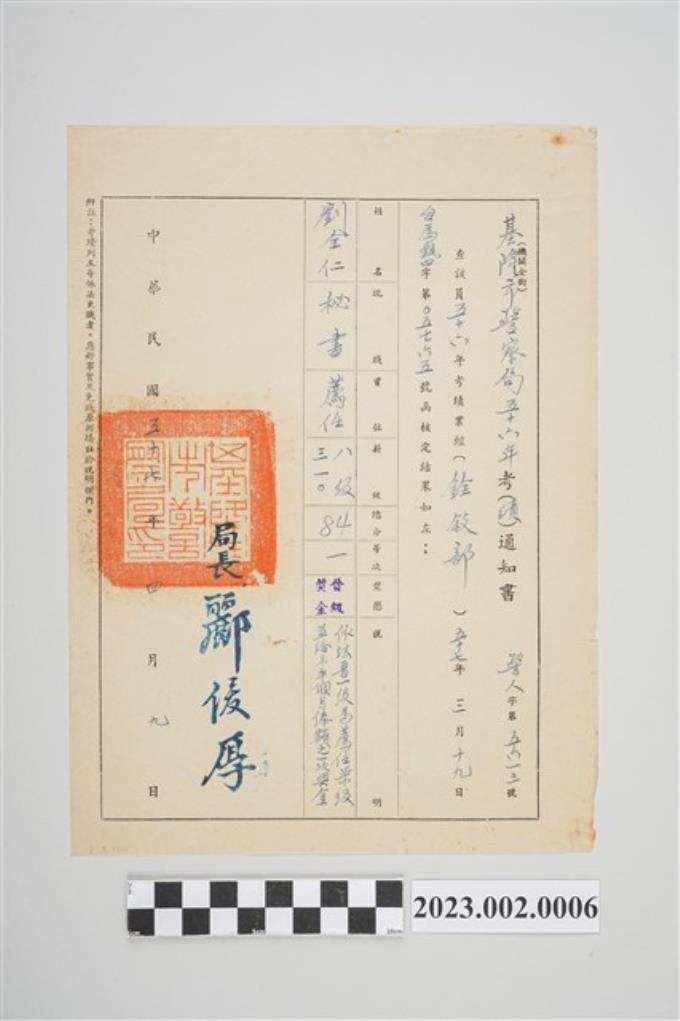 基隆市警察局五十六年考(績)通知書
(機關全銜)
警人字第五六一三號
查該員五十六年考績業經(銓敘部)五十七年三月十九日
台為甄四字第〇五七六五號函核定結果如左：
姓名 現職 官任 薪級 總分 等次 獎懲 說明
劉全仁 秘書 薦任 八級 三一〇 84 一 晉級 獎金
依法晉一級為薦任柒級
並給予半個月俸額之一次獎金
局長 酈俊厚
中華民國五十七年四月九日
附註：考績列五等依法免職者，應於事實及免職原因填註於說明欄內。
2023.002.0006